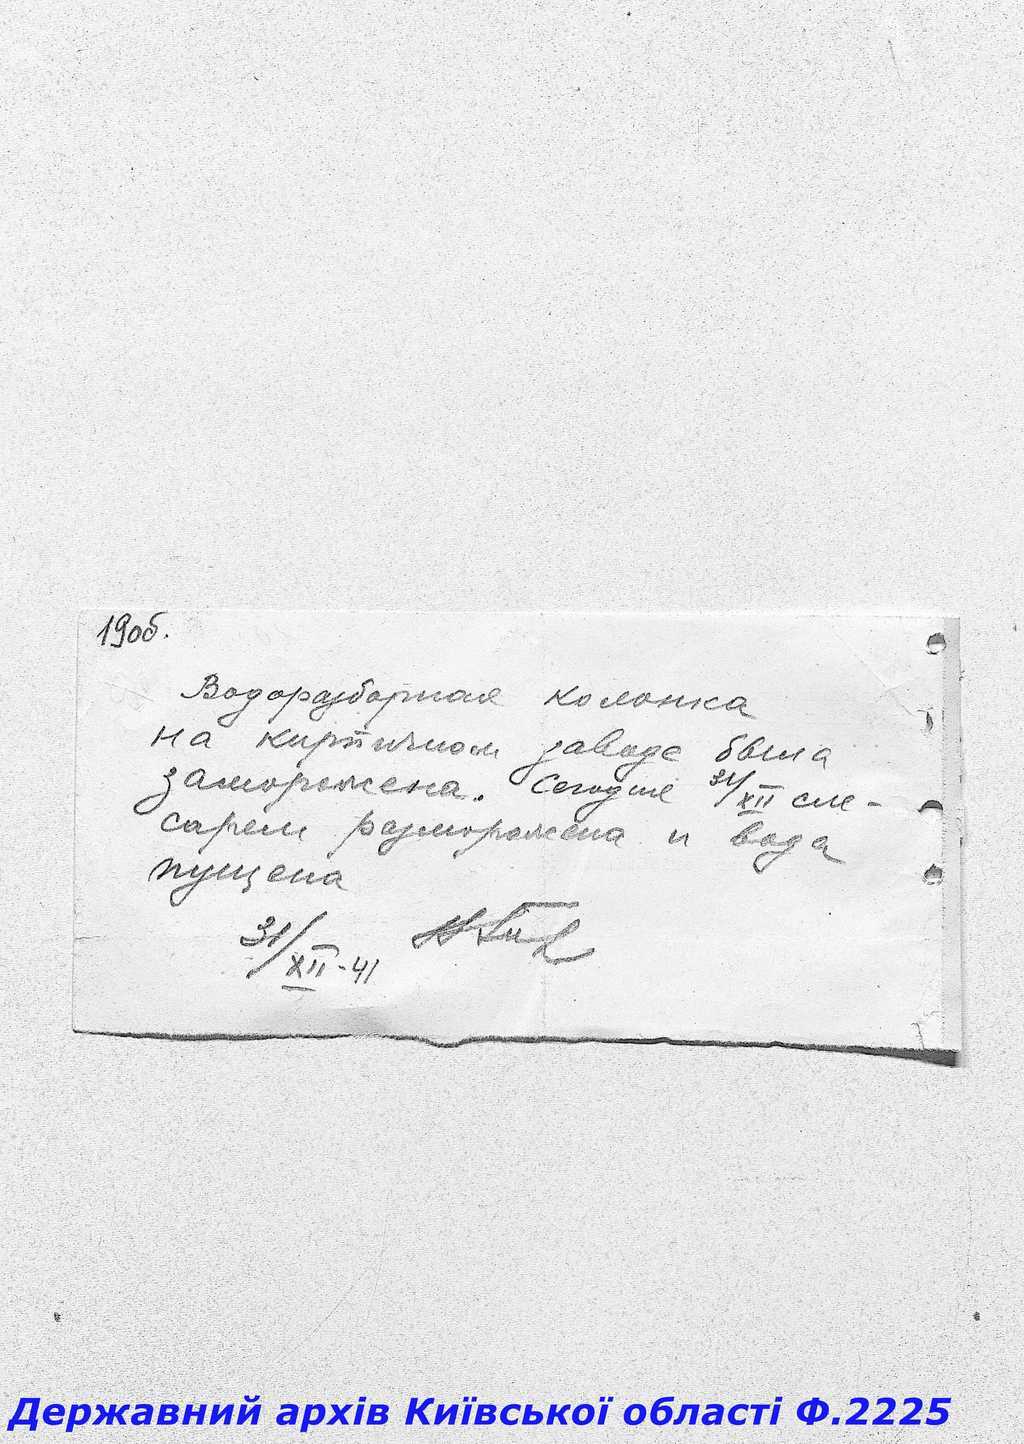 19об.
Водоразборная колонка
на кирпичном заводе была
заморожена. Сегодня 31/XII сле-
сарем разморожена и вода
пущена
31/XII-41
Державний архів Київської області Ф.2225